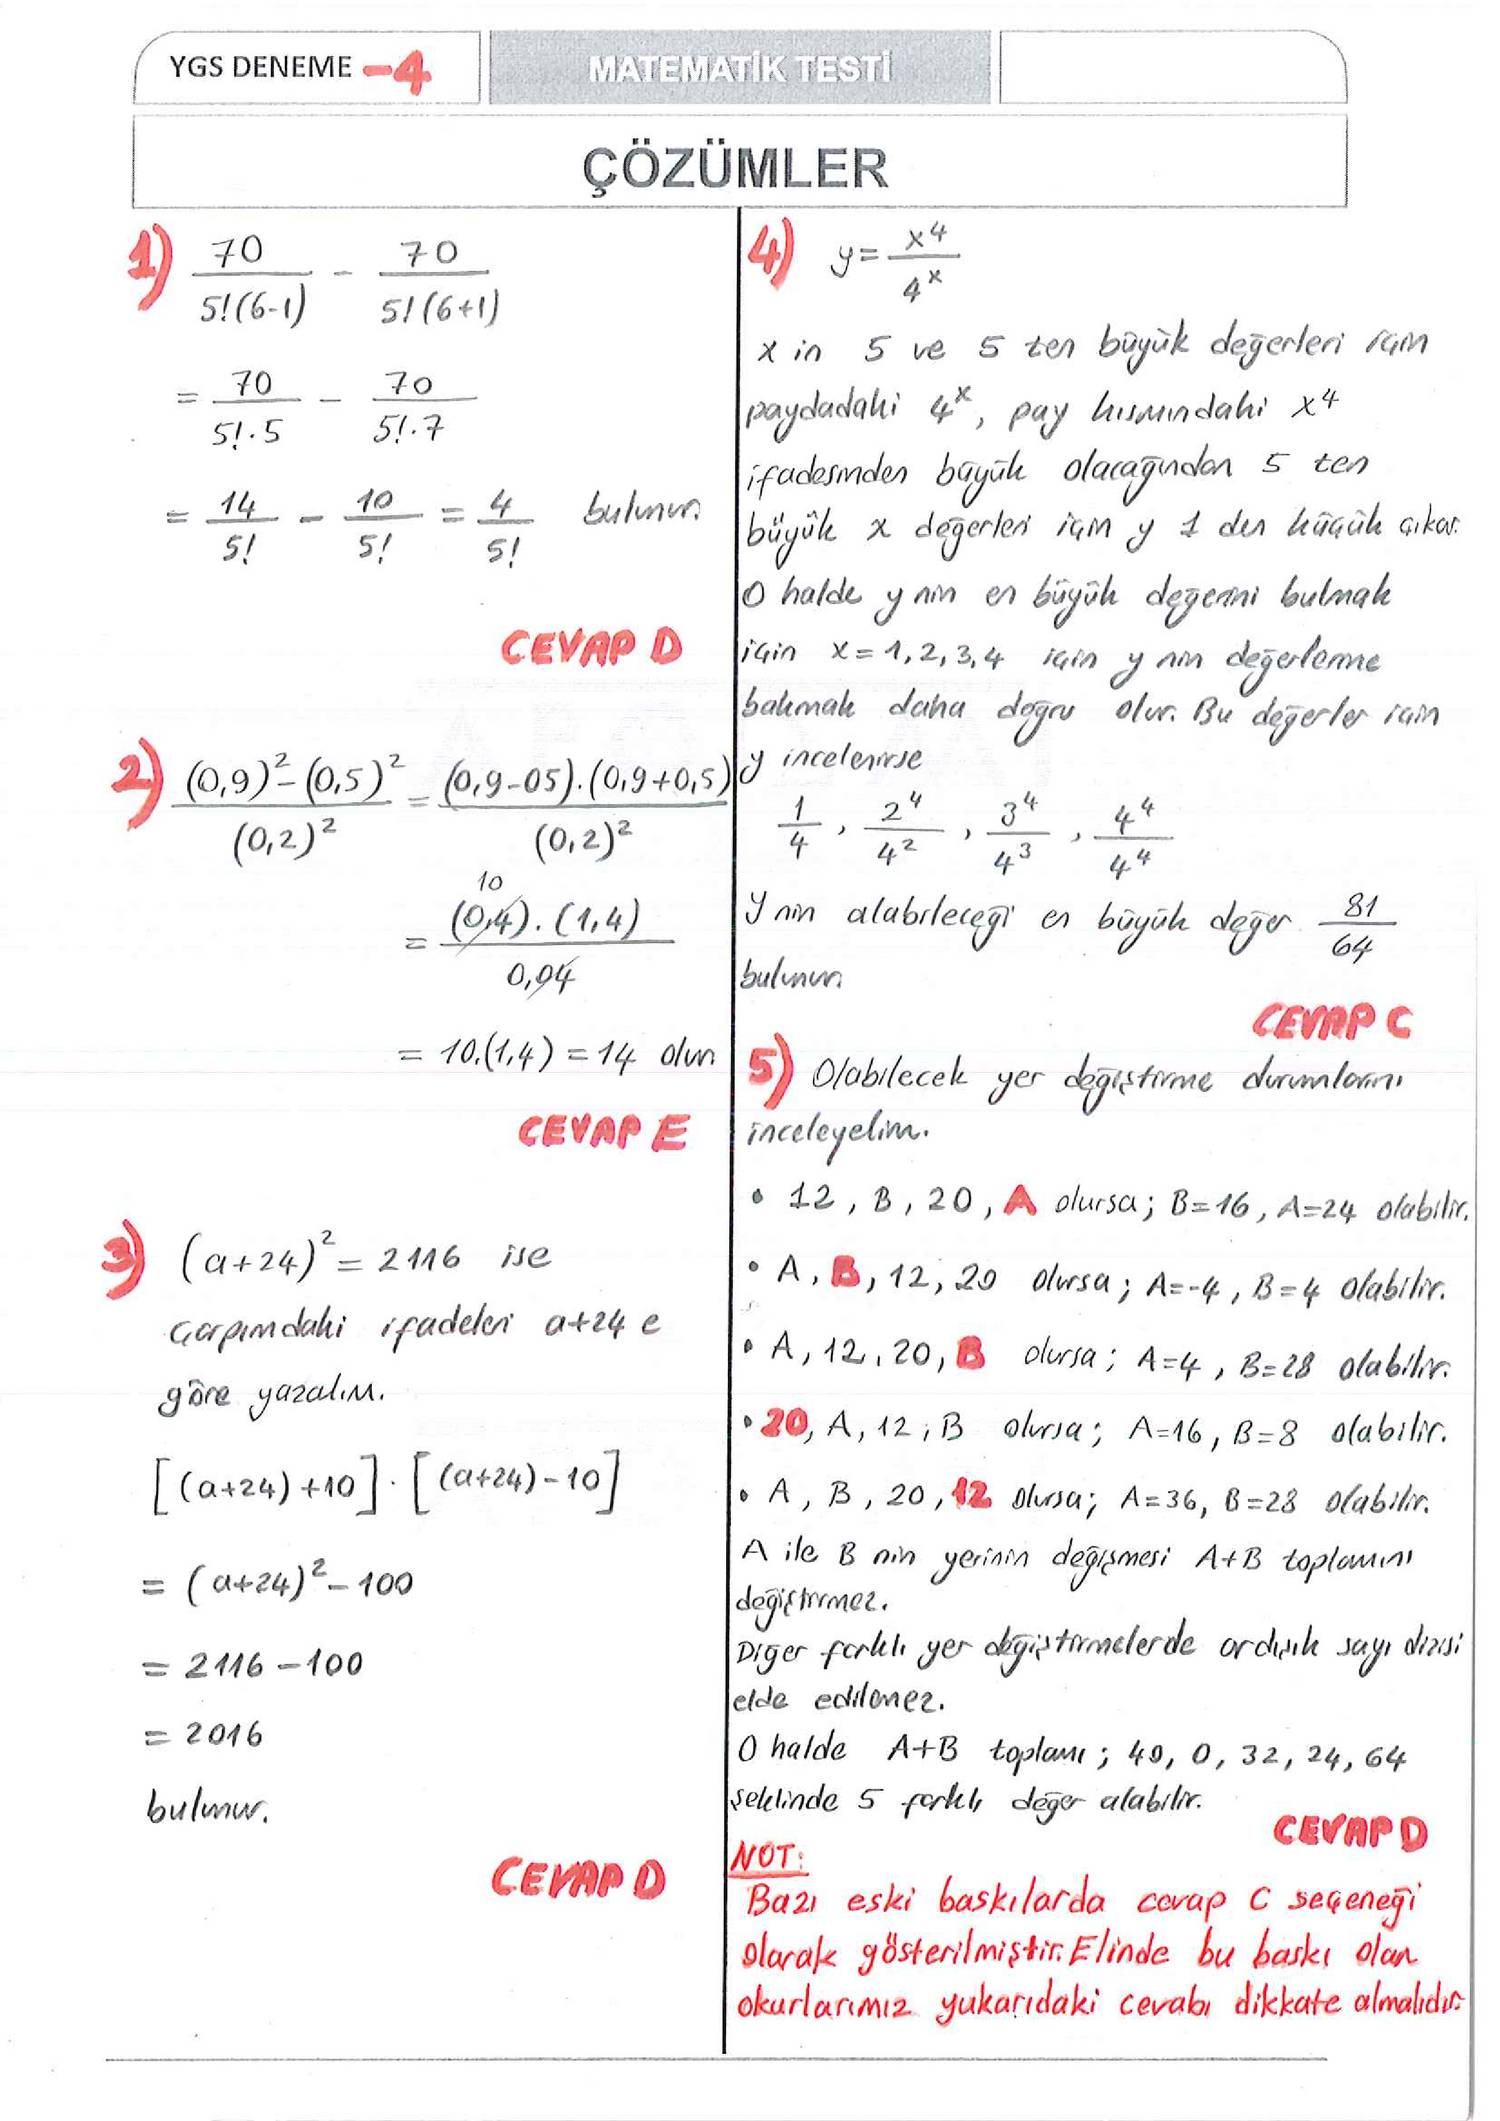 YGS DENEME -4
MATEMATİK TESTİ
ÇÖZÜMLER
1) 70/5!(6-1) - 70/5!(6+1)
= 70/5!.5 - 70/5!.7
= 14/5! - 10/5! = 4/5! bulunur.
CEVAP D
2) (0,9)² - (0,5)² / (0,2)² = (0,9-05).(0,9+0,5) / (0,2)²
10
= (0,4).(1,4) / 0,04
= 10.(1,4) = 14 olur.
CEVAP E
3) (a+24)² = 2116 ise
çarpımdaki ifadeleri a+24 e
göre yazalım.
[(a+24)+10].[(a+24)-10]
= (a+24)² - 100
= 2116 - 100
= 2016
bulunur.
CEVAP D
4) y = x⁴/4ˣ
x in 5 ve 5 ten büyük değerleri için
paydadaki 4ˣ, pay kısmındaki x⁴
ifadesinden büyük olacağından 5 ten
büyük x değerleri için y 1 den küçük çıkar.
O halde y nin en büyük değerini bulmak
için x = 1,2,3,4 için y nin değerlerine
bakmak daha doğru olur. Bu değerler için
y incelenirse
1/4 , 2⁴/4² , 3⁴/4³ , 4⁴/4⁴
y nin alabileceği en büyük değer 81/64
bulunur.
CEVAP C
5) Olabilecek yer değiştirme durumlarını
inceleyelim.
• 12, B, 20, A olursa; B=16, A=24 olabilir.
• A, B, 12, 20 olursa; A=-4, B=4 olabilir.
• A, 12, 20, B olursa; A=4, B=28 olabilir.
• 20, A, 12, B olursa; A=16, B=8 olabilir.
• A, B, 20, 12 olursa; A=36, B=28 olabilir.
A ile B nin yerinin değişmesi A+B toplamını
değiştirmez.
Diğer farklı yer değiştirmelerde ardışık sayı dizisi
elde edilemez.
O halde A+B toplamı; 40, 0, 32, 24, 64
şeklinde 5 farklı değer alabilir.
CEVAP D
NOT:
Bazı eski baskılarda cevap C seçeneği
olarak gösterilmiştir. Elinde bu baskı olan
okurlarımız yukarıdaki cevabı dikkate almalıdır.